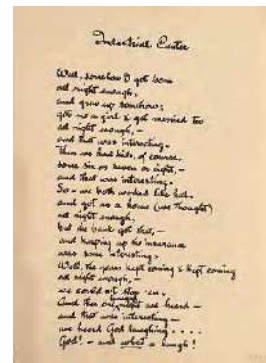 Industrial Center
Well, somehow I got born
all right enough,
and grew up somehow;
got me a girl & got married too
all right enough, —
and that was interesting.
Then we had kids, of course,
some six or seven or eight, —
and that was interesting.
So — we both worked like hell,
and got us a home (we thought)
all right enough,
but the bank got that, —
and keeping up the insurance
was some interesting.
Well, the years kept coming & kept coming
all right enough, —
we could n't stop 'em.
And then one night we heard —
and that was interesting —
we heard God laughing . . . .
God! — and what a laugh!